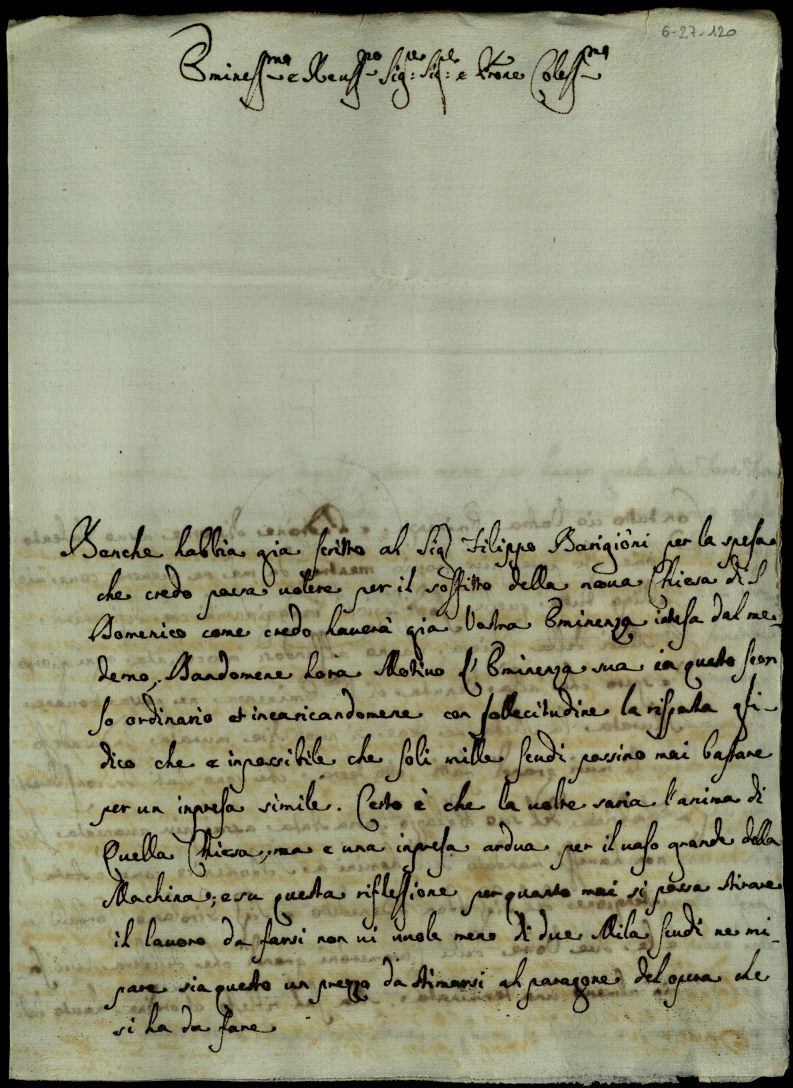 6-27-120
Eminess.mo e Reuss.mo Sig.re Sig.re e Prone Coless.mo
Benche habbia gia scritto al Sig.r Filippo Barigioni per la spesa
che credo possa uolere per il soffitto della noua Chiesa di S
Domenico come credo hauerà gia Vostra Eminenza intesa dal me-
demo, Dandomene hora Motiuo l'Eminenza sua in questo scor
so ordinario et incaricandomene con sollecitudine la risposta gli-
dico che e inpossibile che soli mille scudi possino mai bastare
per un inpresa simile. Certo è che la uolta saria l'anima di
Quella Chiesa, ma e una inpresa ardua per il uaso grande della
Machina; e su questa riflessione per quanto mai si possa stirare
il lauoro da farsi non ui uuole meno di due Mila scudi ne mi-
pare sia questo un prezzo da stimarsi al paragone del opera che
si ha da fare